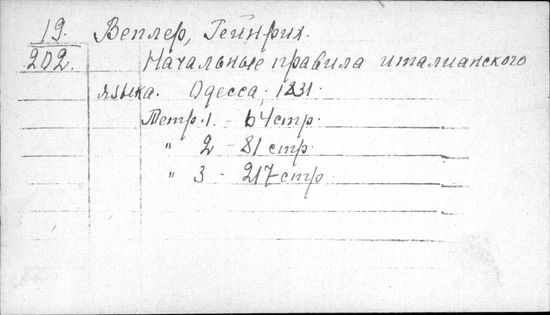 19. Веплер, Гейнрих.
202. Начальные правила италианского
языка. Одесса, 1831.
Тетр. 1. - 64 стр.
" 2 - 81 стр.
" 3 - 217 стр